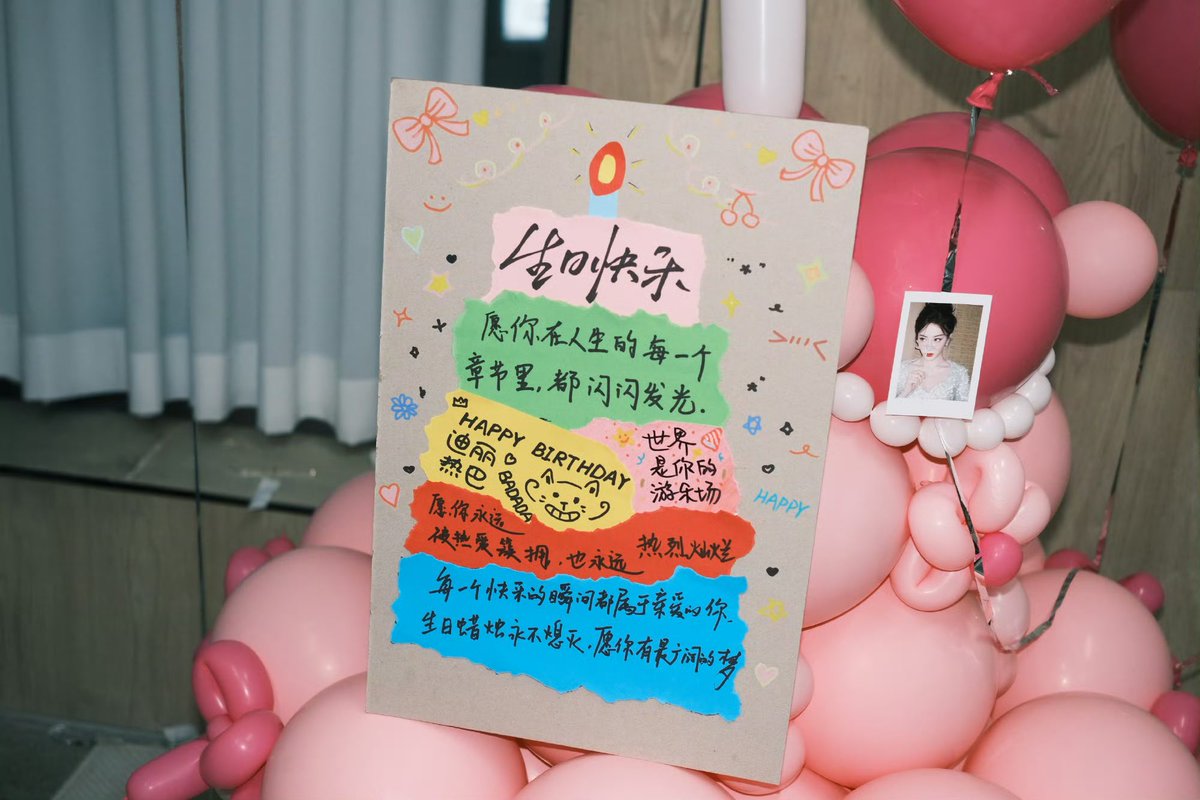 生日快乐
愿你在人生的每一个
章节里,都闪闪发光.
HAPPY BIRTHDAY
迪丽
热巴
BADADA
世界
是你的
游乐场
愿你永远
被热爱簇拥,也永远热烈灿烂
HAPPY
每一个快乐的瞬间都属于亲爱的你.
生日蜡烛永不熄灭,愿你有最广阔的梦